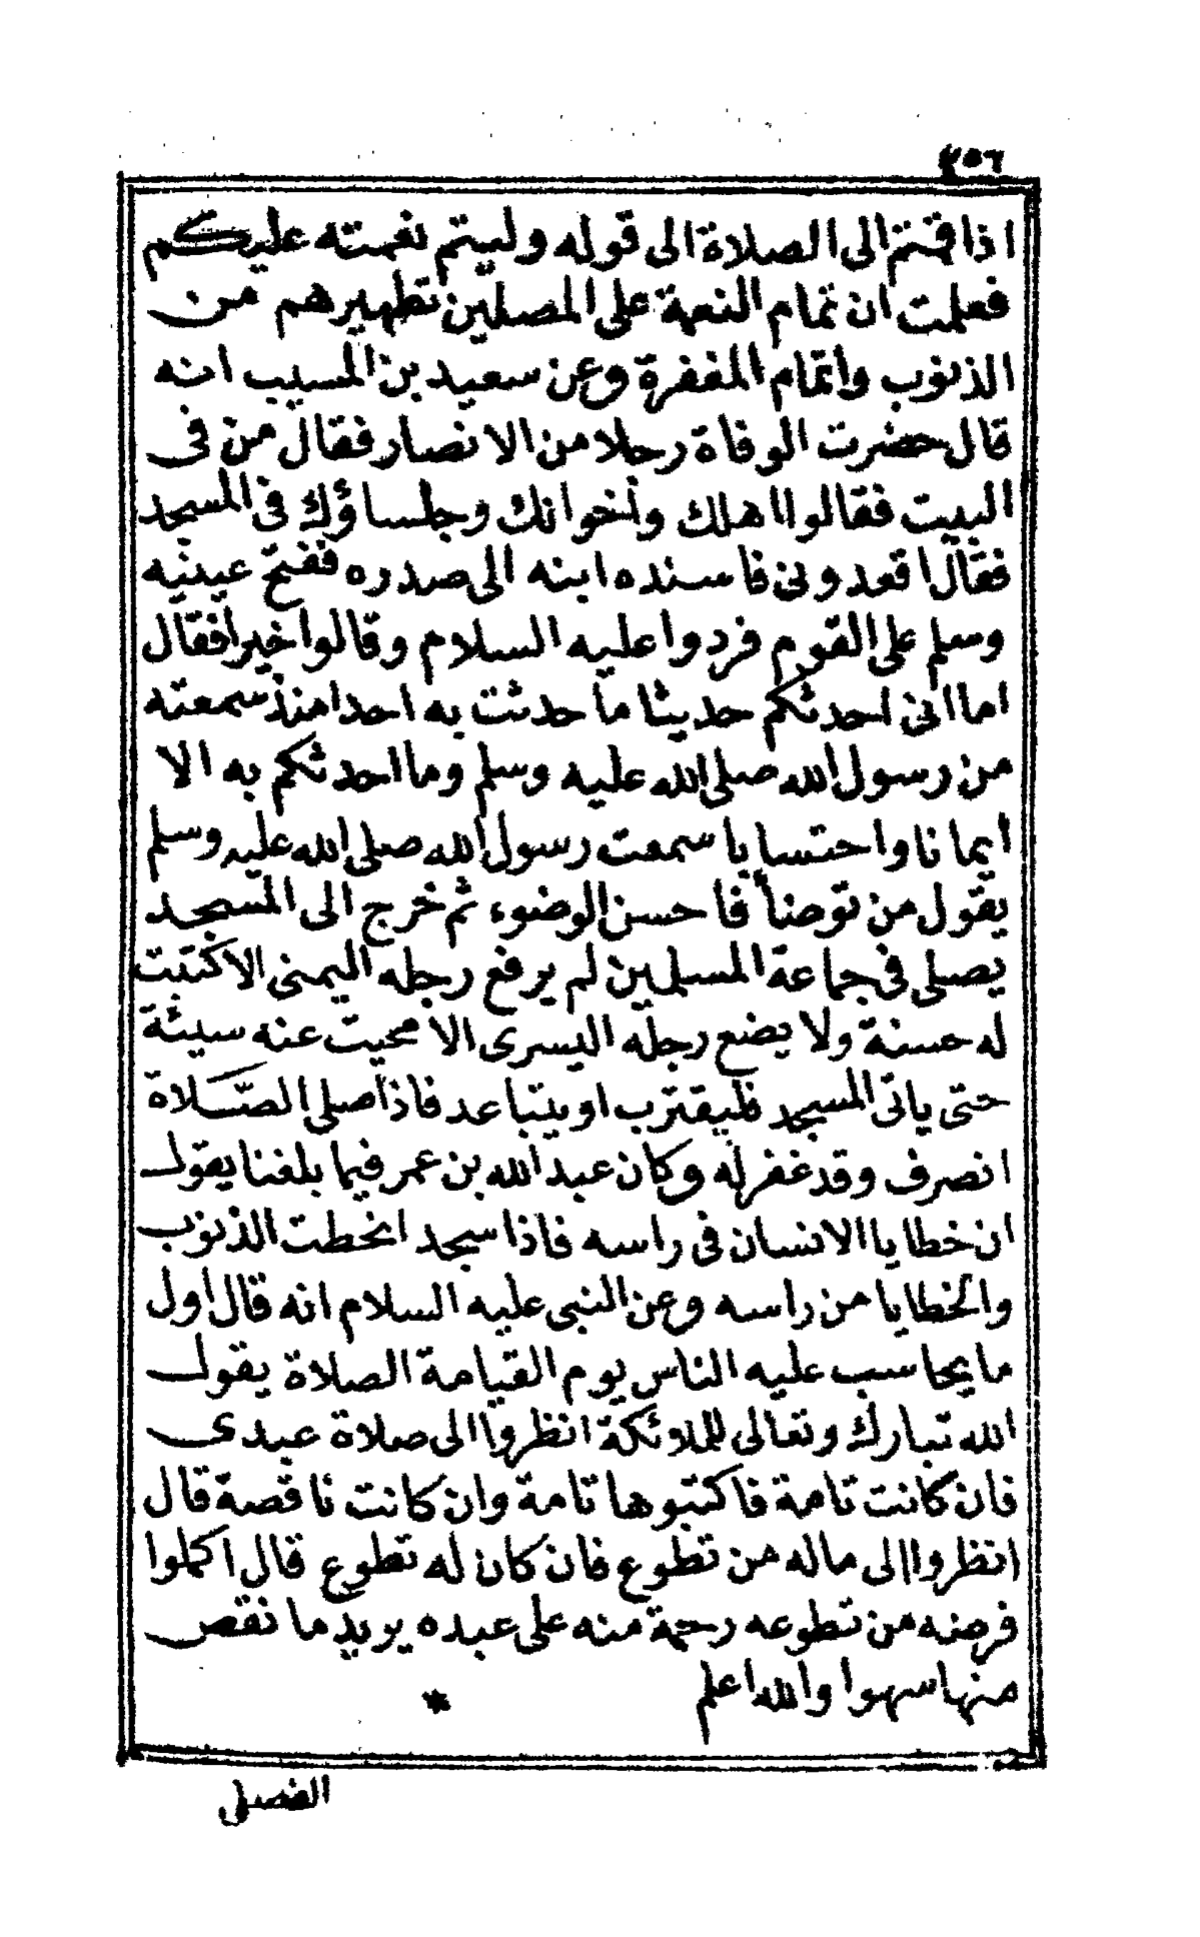 ٢٥٦
اذا قمتم الى الصلاة الى قوله وليتم نعمته عليكم
فعلمت ان تمام النعمة على المصلين تطهيرهم من
الذنوب واتمام المغفرة وعن سعيد بن المسيب انه
قال حضرت الوفاة رجلا من الانصار فقال من فى
البيت فقالوا اهلك وأخوانك وجلساؤك فى المسجد
فقال اقعدونى فاسنده ابنه الى صدره ففتح عينيه
وسلم على القوم فردوا عليه السلام وقالوا خيرا فقال
اما انى احدثكم حديثا ما حدثت به احدا منذ سمعته
من رسول الله صلى الله عليه وسلم وما احدثكم به الا
ايمانا واحتسابا سمعت رسول الله صلى الله عليه وسلم
يقول من توضأ فاحسن الوضوء ثم خرج الى المسجد
يصلى فى جماعة المسلمين لم يرفع رجله اليمنى الا كتبت
له حسنة ولا يضع رجله اليسرى الا محيت عنه سيئة
حتى ياتى المسجد فليقترب او يتباعد فاذا صلى الصَّلاة
انصرف وقد غفر له وكان عبد الله بن عمر فيما بلغنا يقول
ان خطايا الانسان فى راسه فاذا سجد انحطت الذنوب
والخطايا من راسه وعن النبى عليه السلام انه قال اول
ما يحاسب عليه الناس يوم القيامة الصلاة يقول
الله تبارك وتعالى للملائكة انظروا الى صلاة عبدى
فان كانت تامة فاكتبوها تامة وان كانت ناقصة قال
انظروا الى ماله من تطوع فان كان له تطوع قال اكملوا
فرضه من تطوعه رحمة منه على عبده يريد ما نقص
منها سهوا والله اعلم *
الفصل